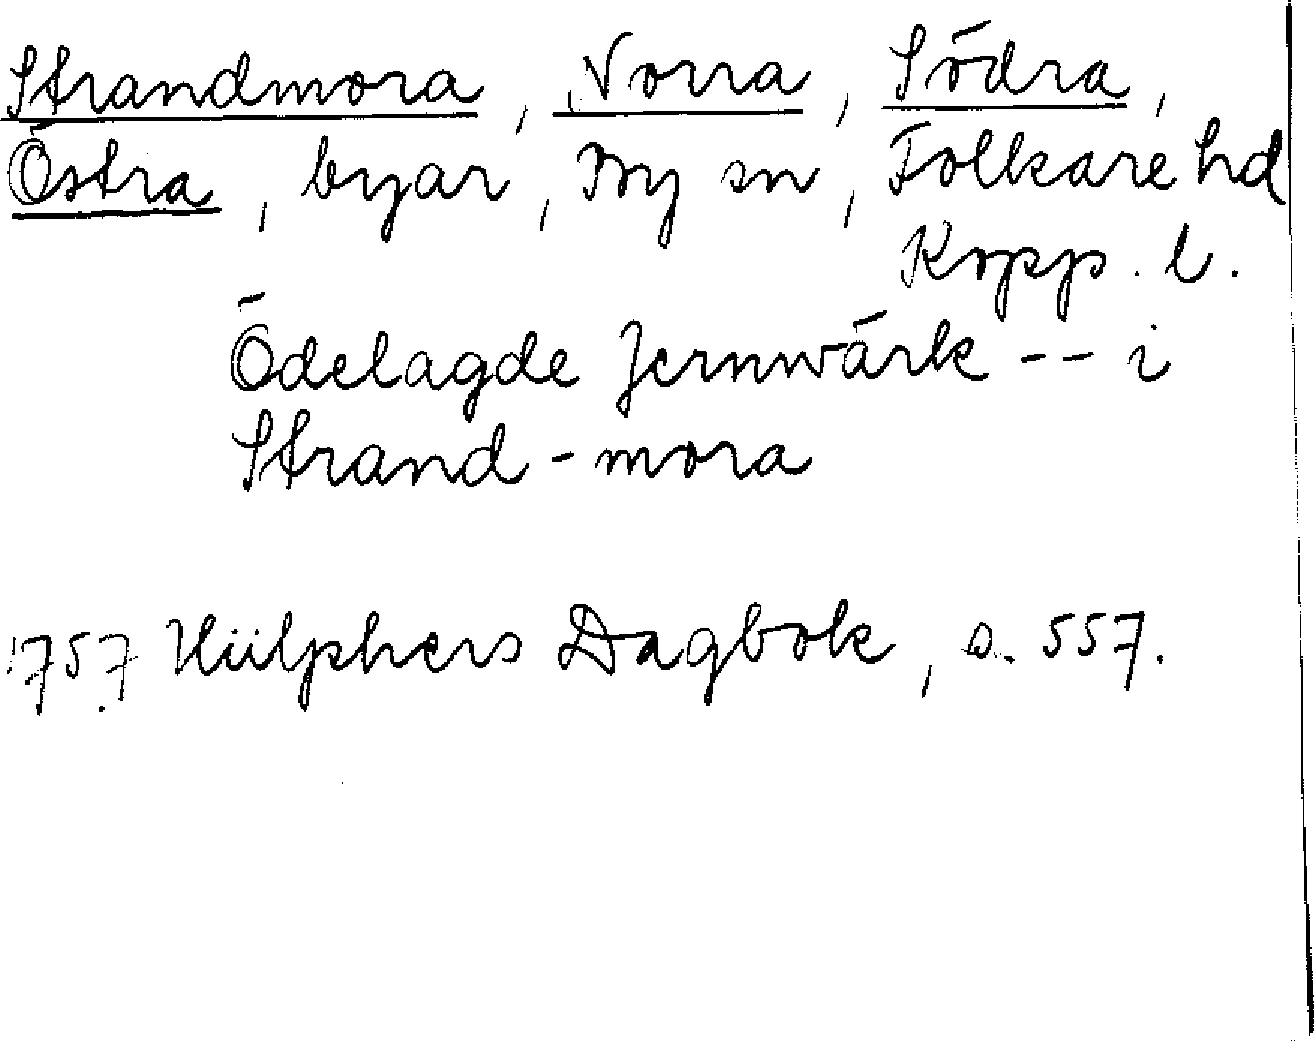 Strandmora, Norra, Södra,
Östra, byar, By sn, Folkare hd
Kopp. l.
Ödelagde Jernwärk -- i
Strand-mora
1757 Hülphers Dagbok, s. 557.